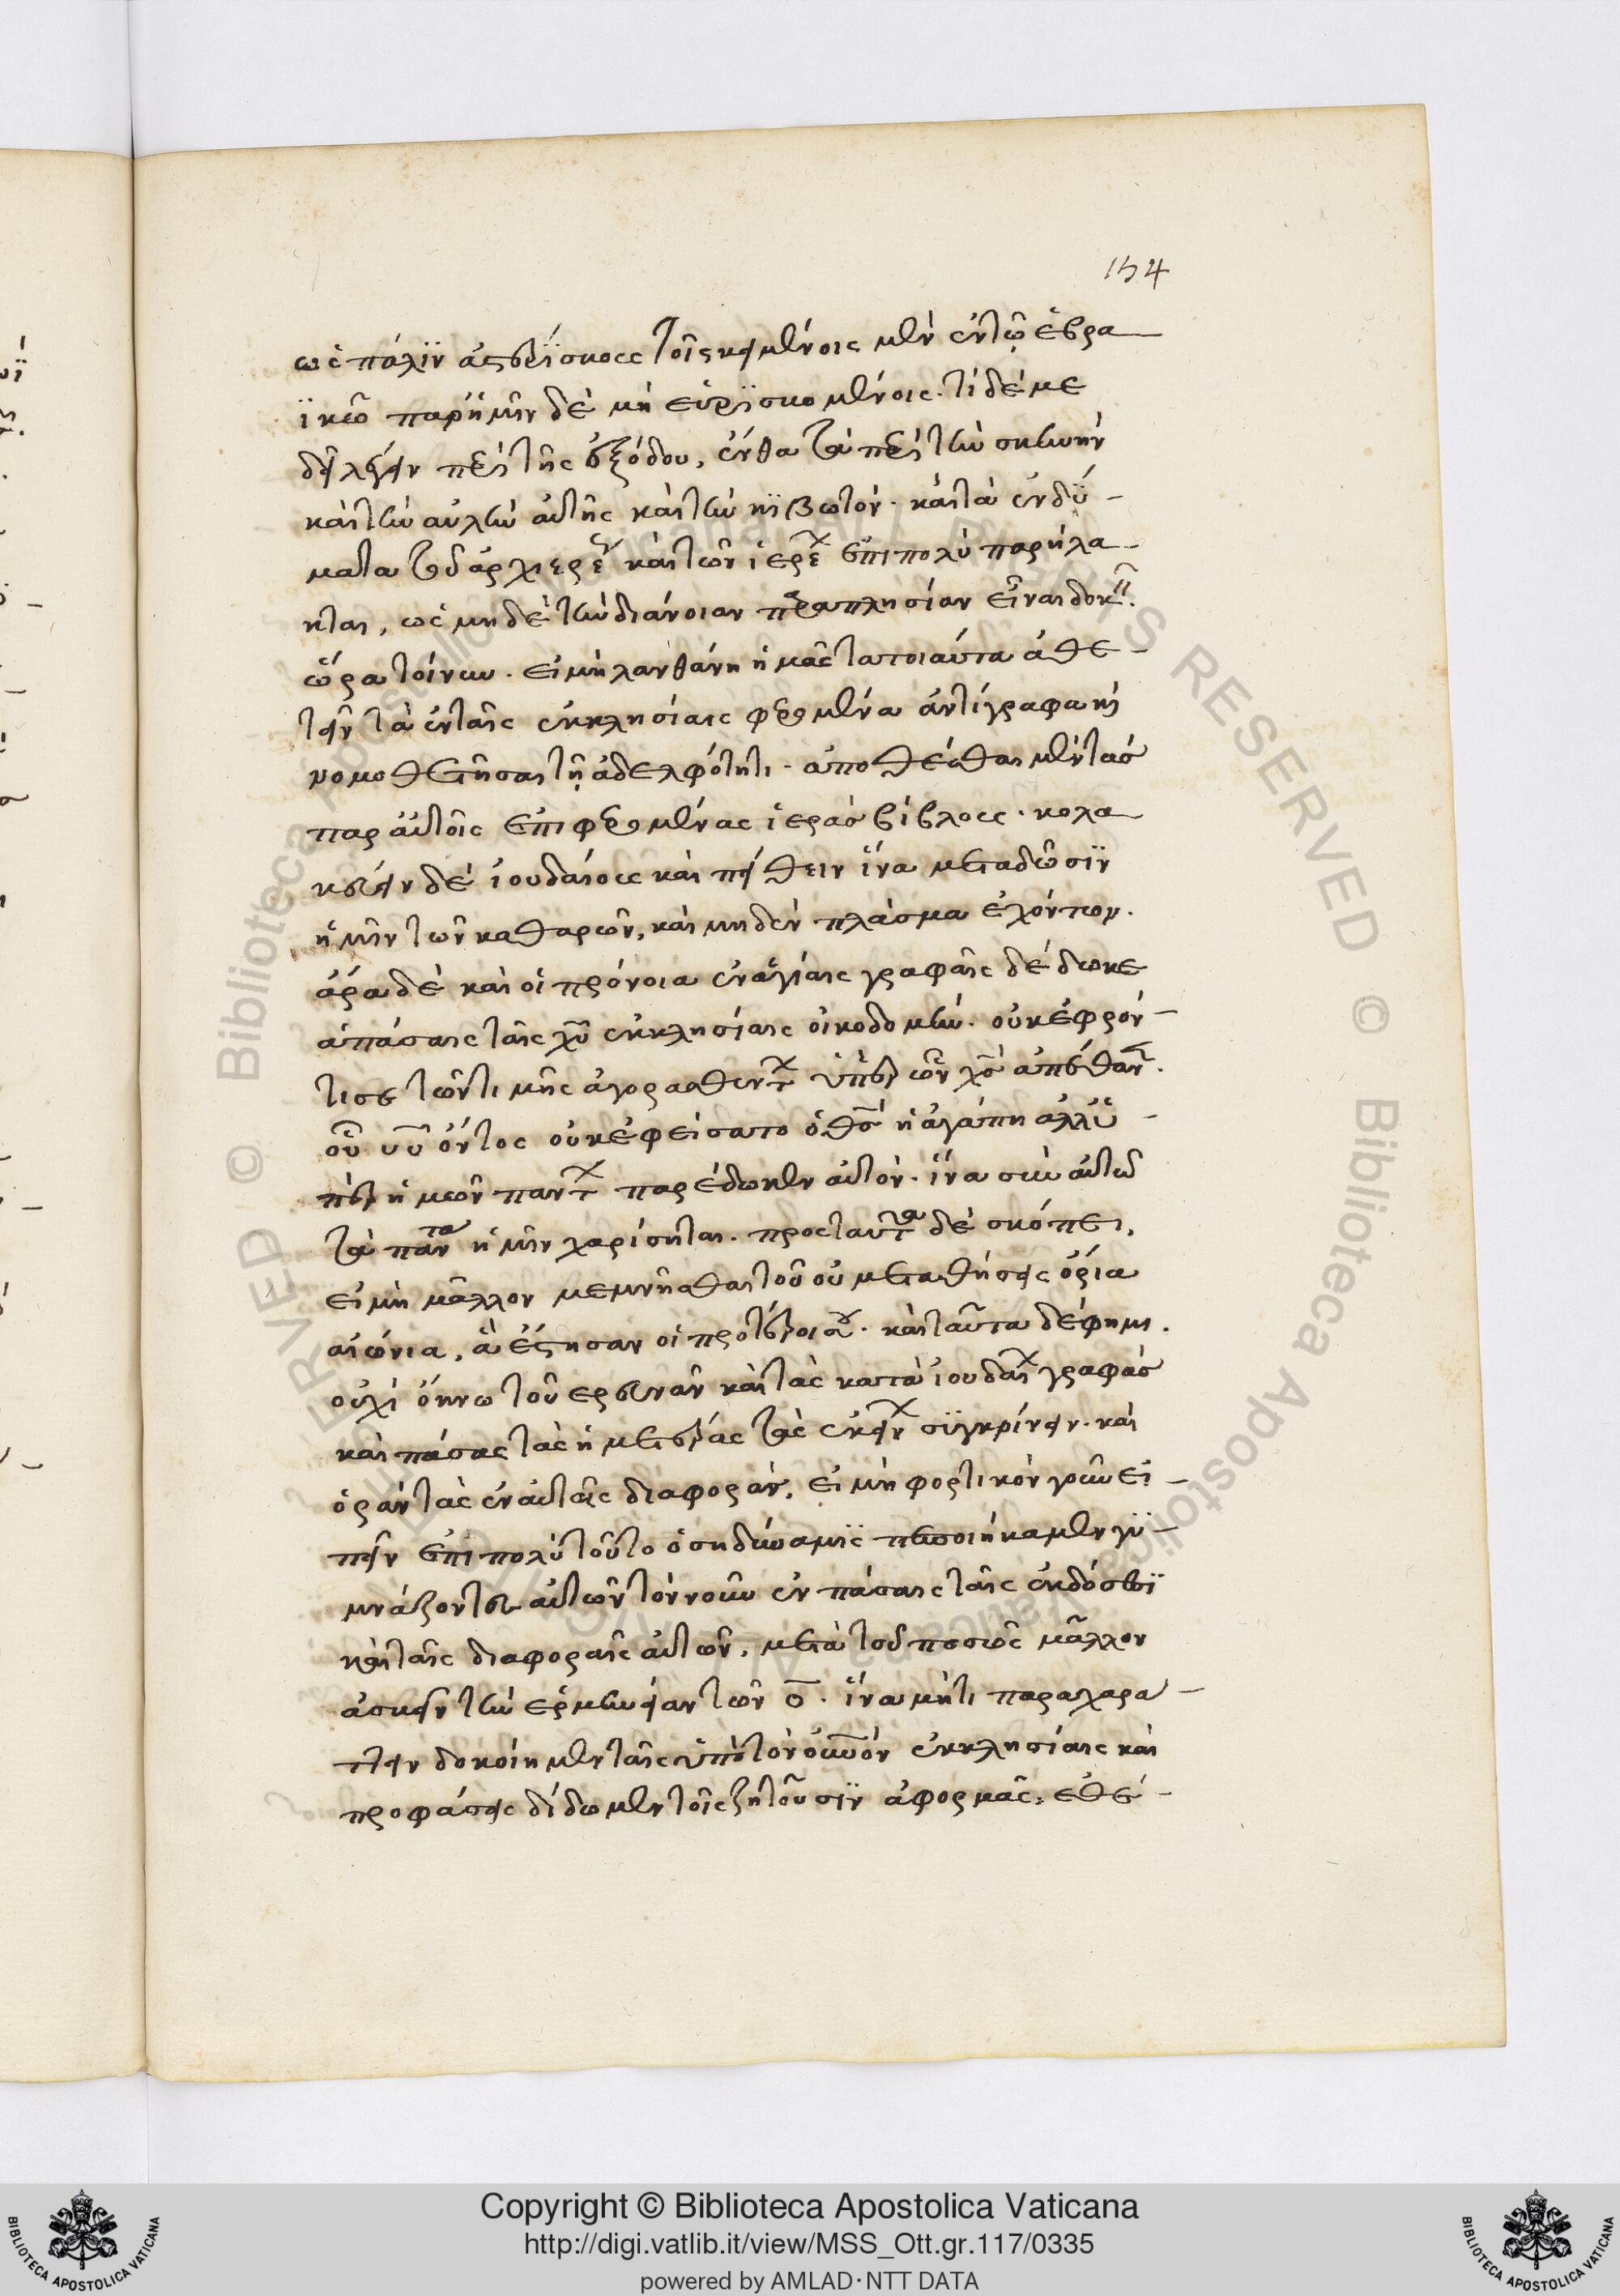 ὡς πάλϊν ἀστερΐσκους τοῖς κειμένοις μὲν ἐν τῷ ἑβρα
ϊκῶ παρ' ἡμῖν δὲ μὴ εὑρϊσκομένοις. τί δέ με
δεῖ λέγειν περὶ τῆς ἐξόδου, ἔνθα τὰ περὶ τὴν σκηνὴν
καὶ τὴν αὐλὴν αὐτῆς καὶ τὴν κϊβωτόν. καὶ τὰ ἐνδΰ-
ματα τοῦ ἀρχιερέ καὶ τῶν ἱερέ ἐπιπολὺ παρήλα
κται, ὡς μηδὲ τὴν διάνοιαν παραπλησίαν εἶναι δοκεῖ.
ὥρα τοίνυν. εἰ μὴ λανθάνη ἡμᾶς τα τοιαύτα ἀθε-
τεῖν τὰ ἐν ταῖς ἐκκλησίαις φερομένα ἀντίγραφα καὶ
νομοθετῆσαι τῇ ἀδελφότητι. ἀποθέσθαι μὲν τὰσ
παρ αὐτοῖς ἐπιφερομένας ἱερὰσ βίβλους. κολα
κεύειν δὲ ἰουδαίους καὶ πείθειν ἵνα μεταδῶσϊν
ἡμῖν τῶν καθαρῶν, καὶ μηδὲν πλάσμα ἐχόντων.
ἆρα δὲ καὶ οἱ πρόνοια ἐν ἁγίαις γραφαῖς δέδωκε
ἁπάσαις ταῖς χῦ ἐκκλησίαις οἰκοδομήν. οὐκ ἐφρόν-
τισε τῶν τιμῆς ἀγορασθέντ ὑπὲρ ὧν χσ̄ ἀπέθαν.
οὗ υῦ ὄντος οὐκ ἐφείσατο ὁ θσ̄ ἡ ἀγάπη ἀλλ' ὑ-
πὲρ ἡμῶν παντ παρέδωκεν αὐτόν. ἵνα σὺν αὐτῶ
τὰ πάντα ἡμῖν χαρίσηται. προς ταύτα δὲ σκόπει,
εἰ μὴ μᾶλλον μεμνῆσθαι τοῦ οὐ μεταθήσεις ὅρια
αἰώνια, ἃ ἔστησαν οἱ πρότεροι σου. καὶ ταῦτα δέ φημι.
οὐχὶ ὄκνω τοῦ ερευνᾶν καὶ τὰς κατὰ ἰουδαί γραφὰσ
καὶ πάσας τὰς ἡμετέρας τὰς ἐκείν σϊγκρίνειν. καὶ
ὁρᾶν τὰς ἐν αὐταῖς διαφοράν, εἰ μὴ φορτικὸν γοῦν εἰ-
πεῖν ἐπι πολὺ τοῦτο ὅση δύναμϊς πεποιήκαμεν γϋ-
μνάζοντες αὐτῶν τὸν νοῦν ἐν πάσαις ταῖς ἐκδόσεσϊ
καὶ ταῖς διαφοραῖς αὐτῶν, μετὰ τοῦ ποσῶς μᾶλλον
ἀσκεῖν τὴν ἑρμηνείαν τῶν ο̄. ἵνα μή τι παραχαρά-
ττειν δοκοίημεν ταῖς ὑπὸ τὸν οὐνὸν ἐκκλησίαις καὶ
προφάσεις δίδωμεν τοῖς ζητοῦσϊν ἀφορμᾶς, ἐθέ-